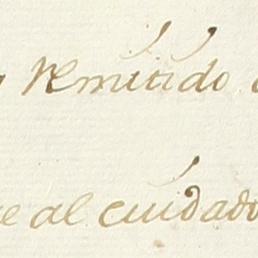 remitido
e al cuidado